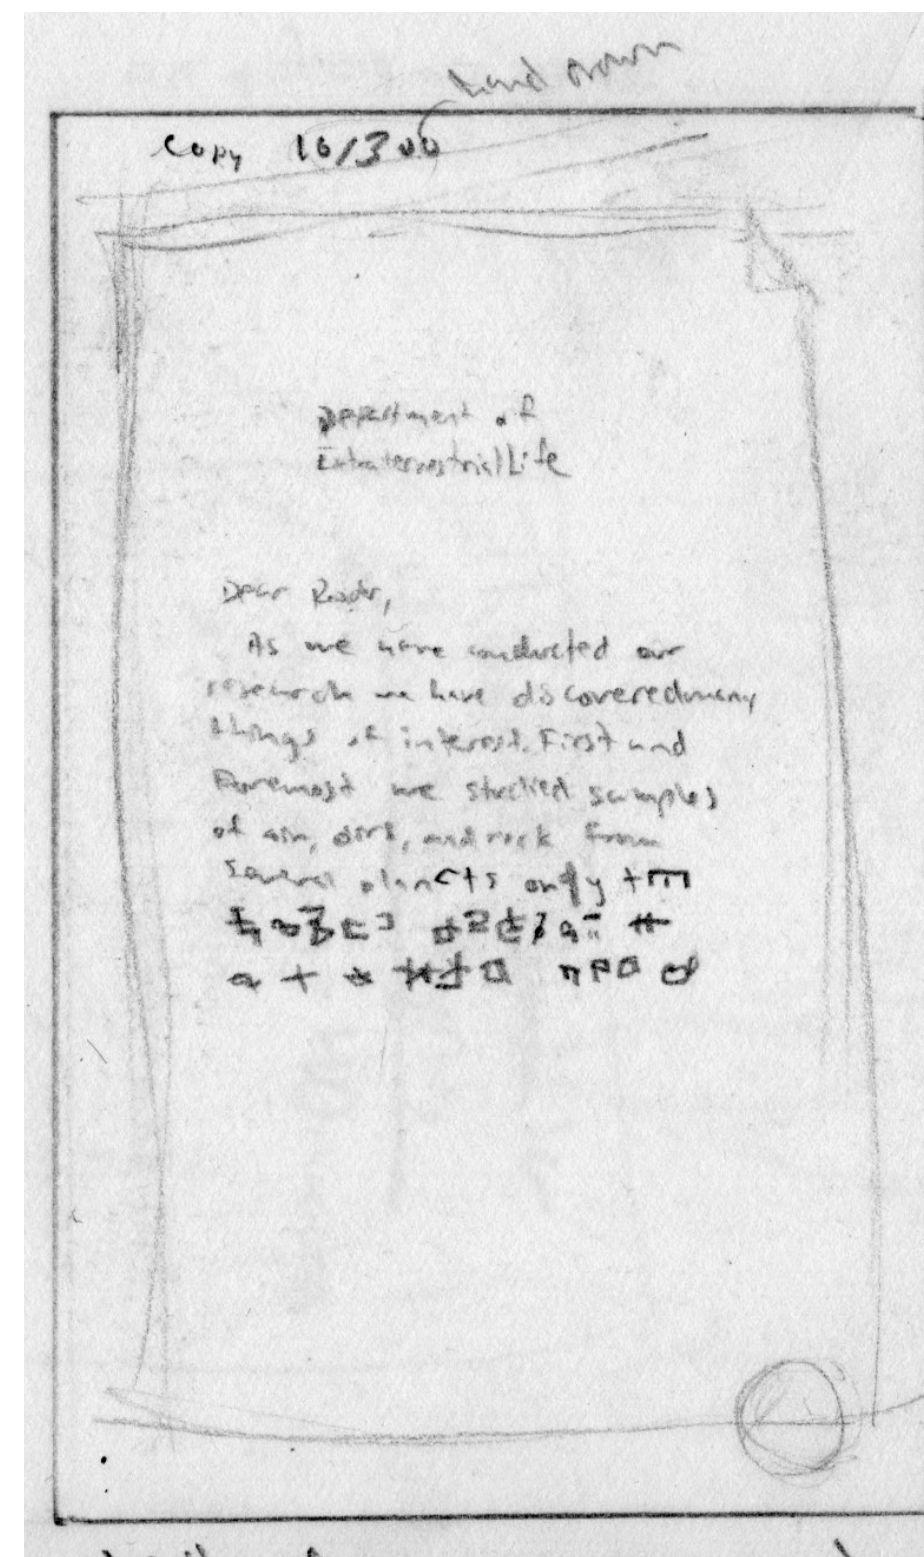 hand drawn
Copy 10/300
Department of
Extraterrestrial Life
Dear Reader,
As we have conducted our
research we have discovered many
things of interest. First and
Foremost we studied samples
of air, dirt, and rock from
several planets only